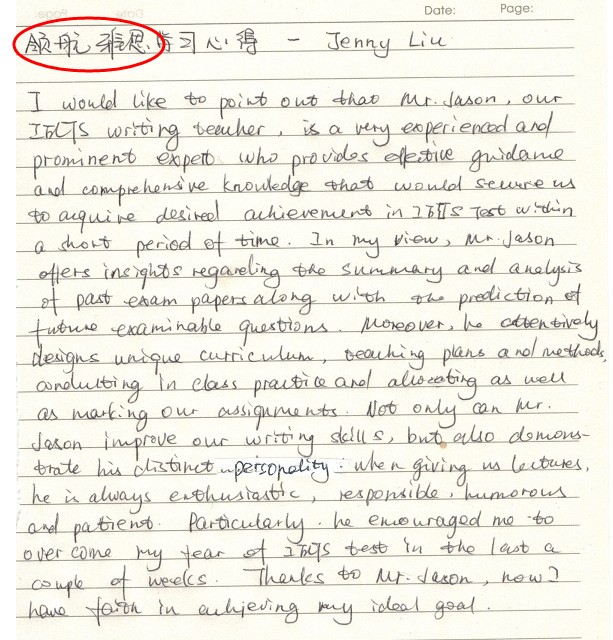 Date: Page:
领航雅思学习心得 - Jenny Liu
I would like to point out that Mr. Jason, our
IELTS writing teacher, is a very experienced and
prominent expert who provides effective guidance
and comprehensive knowledge that would secure us
to acquire desired achievement in IELTS Test within
a short period of time. In my view, Mr. Jason
offers insights regarding the summary and analysis
of past exam papers along with the prediction of
future examinable questions. Moreover, he attentively
designs unique curriculum, teaching plans and methods,
conducting in class practice and allocating as well
as marking our assignments. Not only can Mr.
Jason improve our writing skills, but also demons-
trate his distinct personality. When giving us lectures,
he is always enthusiastic, responsible, humorous
and patient. Particularly, he encouraged me to
overcome my fear of IELTS test in the last a
couple of weeks. Thanks to Mr. Jason, now I
have faith in achieving my ideal goal.